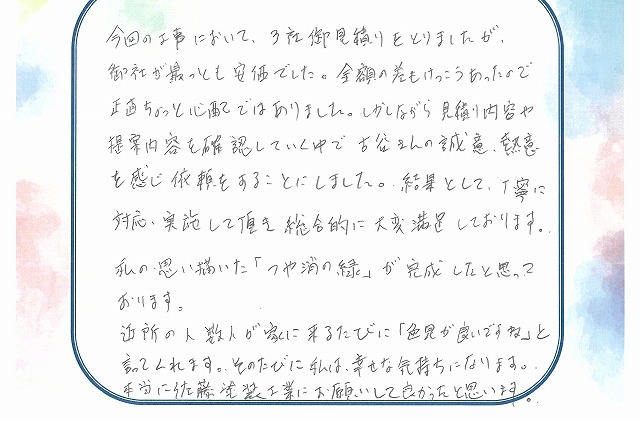 今回の工事において、3社御見積りをとりましたが、
御社が最っとも安価でした。金額の差もけっこうあったので
正直ちょっと心配ではありました。しかしながら見積り内容や
提案内容を確認していく中で古谷さんの誠意、熱意
を感じ依頼をすることにしました。結果として、丁寧に
対応、実施して頂き総合的に大変満足しております。
私の思い描いた「つや消の緑」が完成したと思って
おります。
近所の人数人が家に来るたびに「色見が良いですね」と
言ってくれます。そのたびに私は、幸せな気持ちになります。
本当に佐藤塗装工業にお願いして良かったと思います。